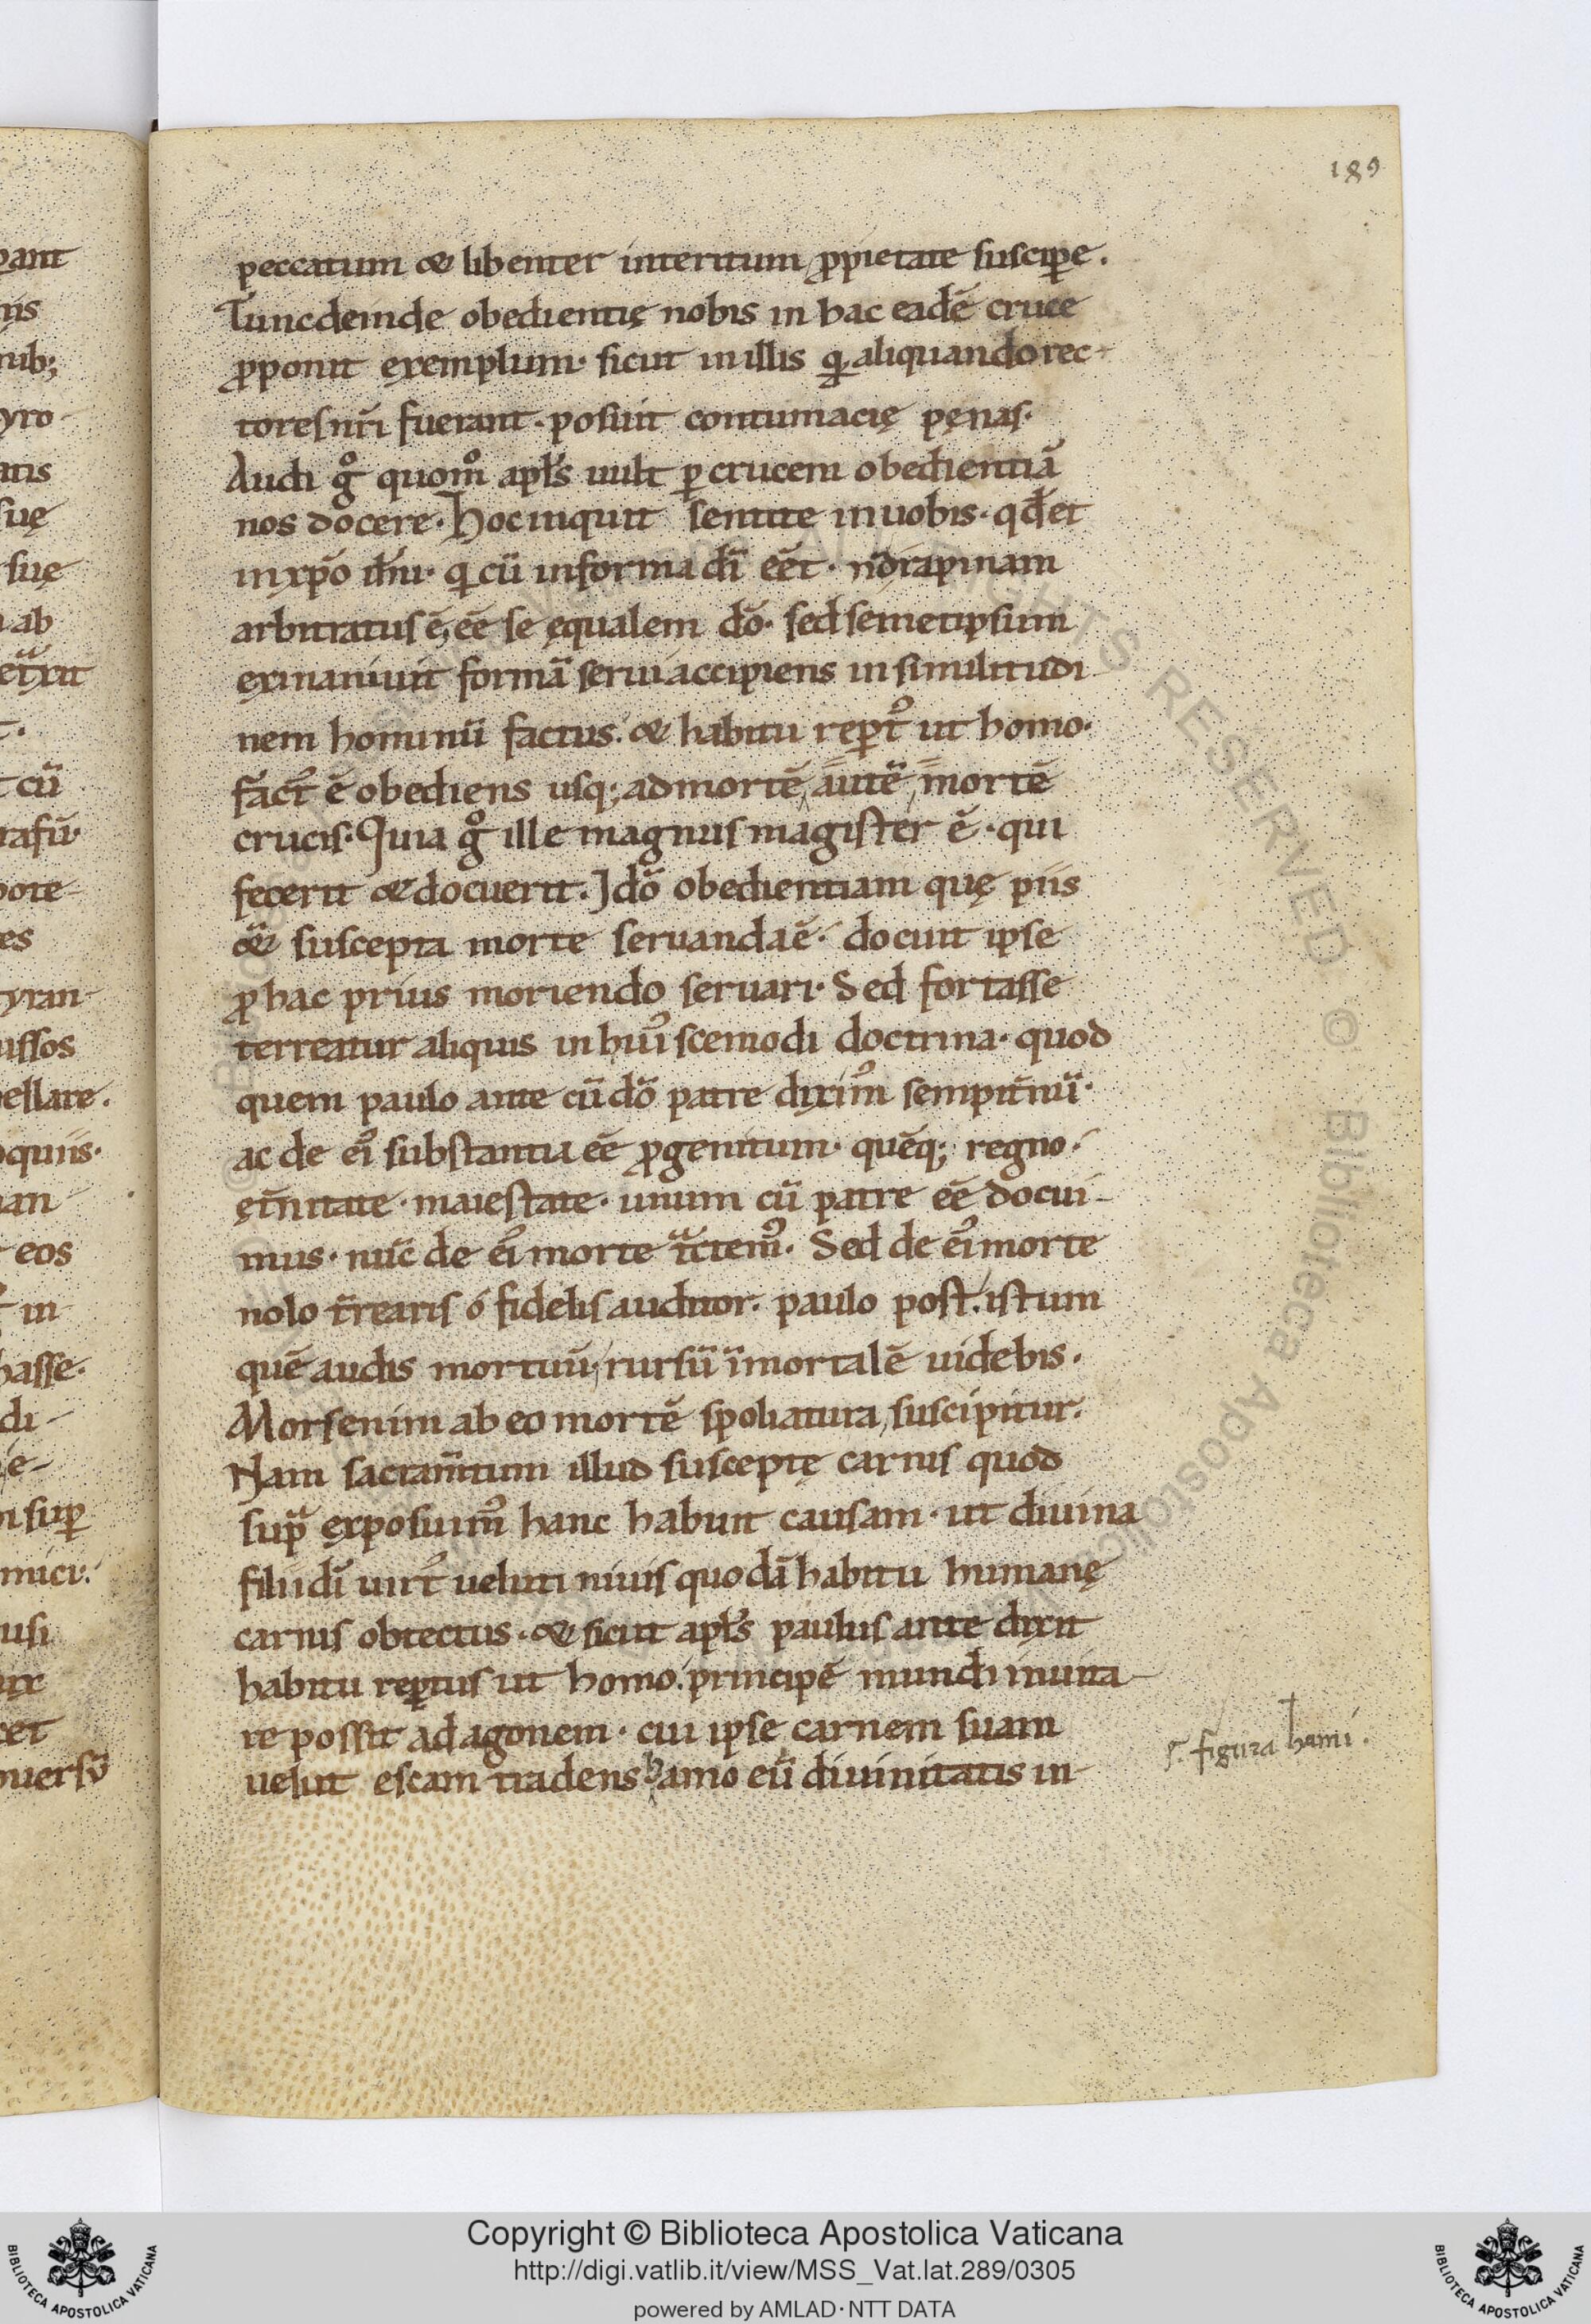 189
peccatum & libenter interitum ꝓpietate suscipe.
Tuncdeinde obedientię nobis in hac eadē cruce
ꝓponit exemplum· sicut inillis qͥ aliquandorec-
toresnrī fuerant· posuit contumacię pęnas·
Audi gͦ quomͦ apłs uult ꝑcrucem obedientiā
nos docere· Hocinquit sentite inuobis· qđet
inxp̄o ihū· qͥ cū informa dī eēt· nōrapinam
arbitratus ē, eē se ęqualem dō· sed semetipsum
exinaniuit formā seruiaccipiens in similitudi
nem hominū factus· & habitu reꝑtꝰ ut homo·
factꝰ ē obediens usq; admortē, autē mortē
crucis· Quia gͦ ille magnus magister ē· qui
fecerit & docuerit. Idō obedientiam quę piis
&̄ suscepta morte seruandaē· docuit ipse
ꝓ hac prius moriendo seruari· Sed fortasse
terreatur aliquis in huiꝰscemodi doctrina· quod
quem paulo ante cūdō patre diximꝰ sempit̄nū·
ac de eiꝰ substantia eē ꝓgenitum· quēq; regno·
ęt̄nitate· maiestate· unum cū patre eē docui-
mus· nūc de eiꝰ morte tͣctemꝰ· Sed de eiꝰ morte
nolo t̄rearis ó fidelis auditor· paulo post· istum
quē audis mortuū, rursū īmortalē uidebis.
Morsenim ab eo mortē spoliatura, suscipitur.
Nam sacram̄tum illud susceptę carnis quod
supͣ exposuimꝰ hanc habuit causam· ut diuina
filiidī uirtꝰ ueluti niuis quodā habitu humanę
carnis obtectus· & sicut apłs paulus ante dixit
habitu reꝑtus ut homo· principē mundi inuita-
re possit ad agonem· cui ipse carnem suam
uelut escam tradens hamo eū diuinitatis in-
figura hami.
Copyright © Biblioteca Apostolica Vaticana
http://digi.vatlib.it/view/MSS_Vat.lat.289/0305
powered by AMLAD·NTT DATA
BIBLIOTECA APOSTOLICA VATICANA
BIBLIOTECA APOSTOLICA VATICANA